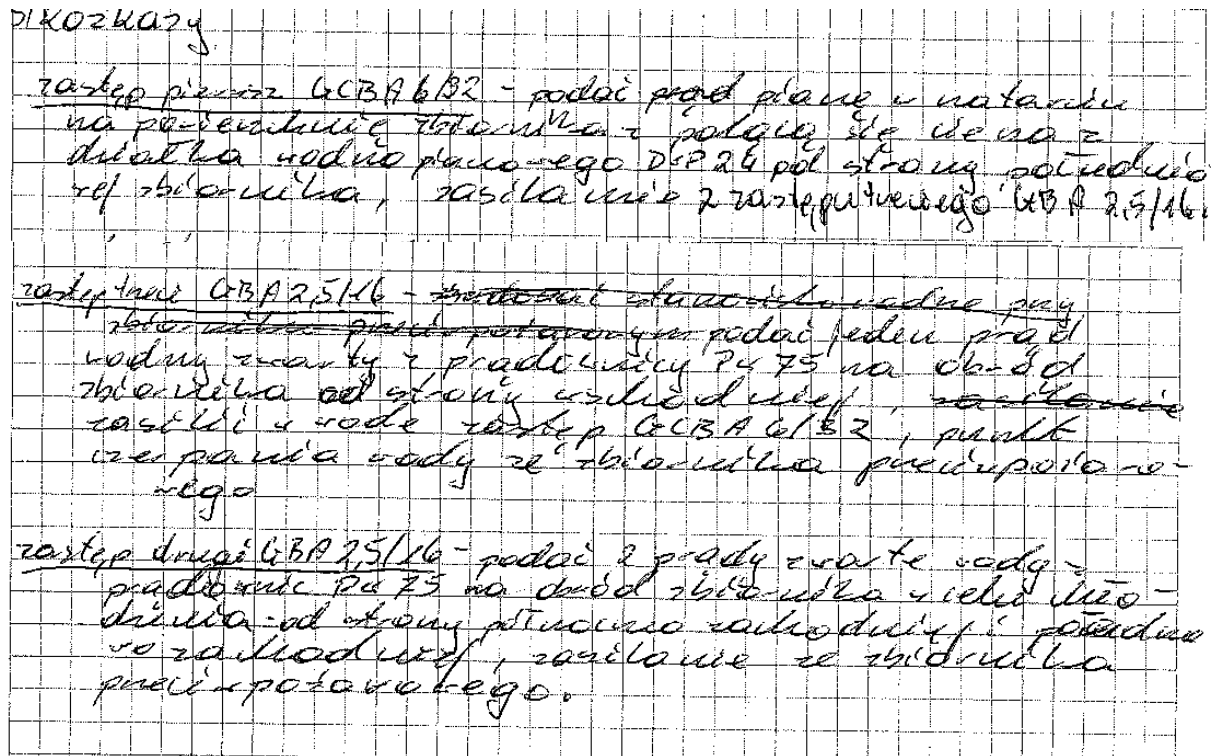 Rozkazy
zastęp pierwszy GCBA 6/32 - podać prąd pianę w natarciu
na powierzchnię zbiornika z palącą się cieczą z
działka wodno pianowego DWP 24 od strony południo
wej zbiornika, zasilanie z zastępu trzeciego GBA 2,5/16.
zastęp trzeci GBA 2,5/16 - stanowisko wodne przy
podać jeden prąd
wodny zwarty z prądownicy PW 75 na obród
zbiornika od strony wschodniej, zasilanie
zasilić w wodę zastęp GCBA 6/32, punkt
czerpania wody ze zbiornika przeciwpożaro-
wego
zastęp drugi GBA 2,5/16 - podać 2 prądy zwarte wody z
prądownic PW 75 na obród zbiornika w celu chło-
dzenia od strony północno zachodniej i południo
wo zachodniej, zasilanie ze zbiornika
przeciwpożarowego.